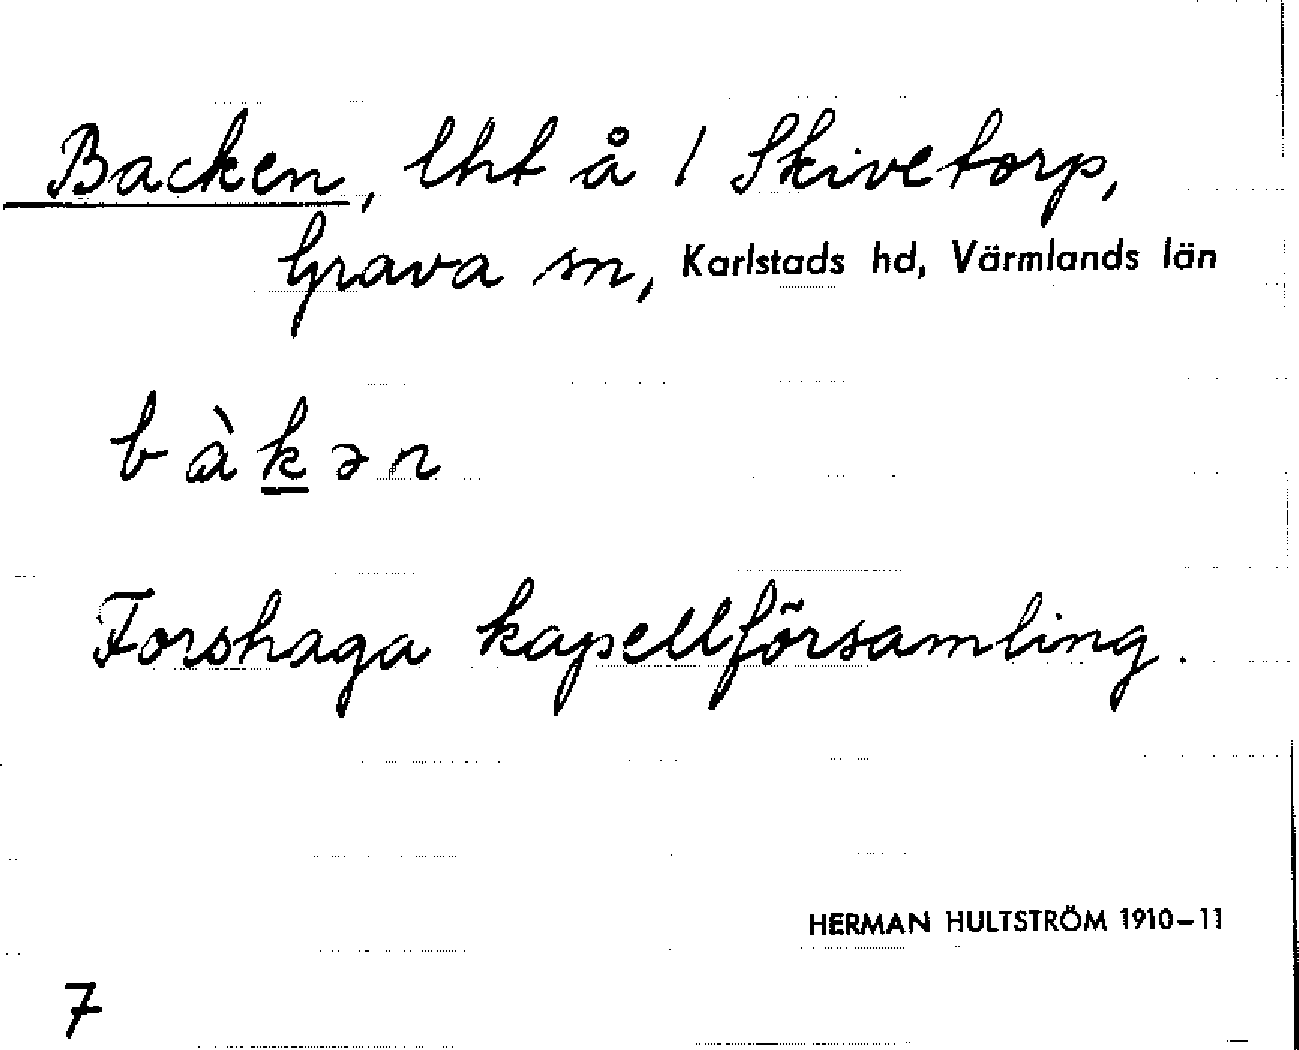 Backen, lht å 1 Skivetorp,
Grava sn, Karlstads hd, Värmlands län
bàkən
Forshaga kapellförsamling.
HERMAN HULTSTRÖM 1910-11
7